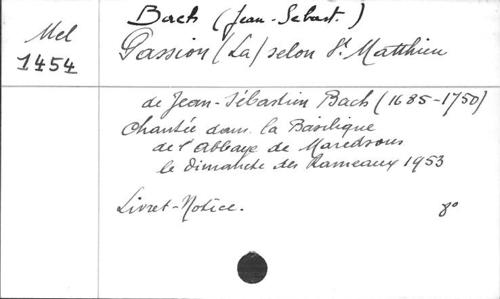 Mel
1454
Bach (Jean-Sebast.)
Passion (La) selon St. Matthieu
de Jean-Sébastien Bach (1685-1750)
Chantée dans la Basilique
de l'Abbaye de Maredsous
le dimanche des Rameaux 1953
Livret-Notice. 8°